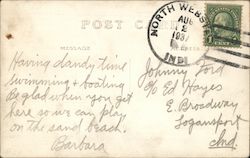 POST CARD
NORTH WEBS
AUG
2
1937
IND
MESSAGE
Having dandy time
swimming & boating.
Be glad when you get
here so we can play
on the sand beach.
Barbara
Johnny Ford
% Ed Hayes
E. Broadway
Logansport
Ind.